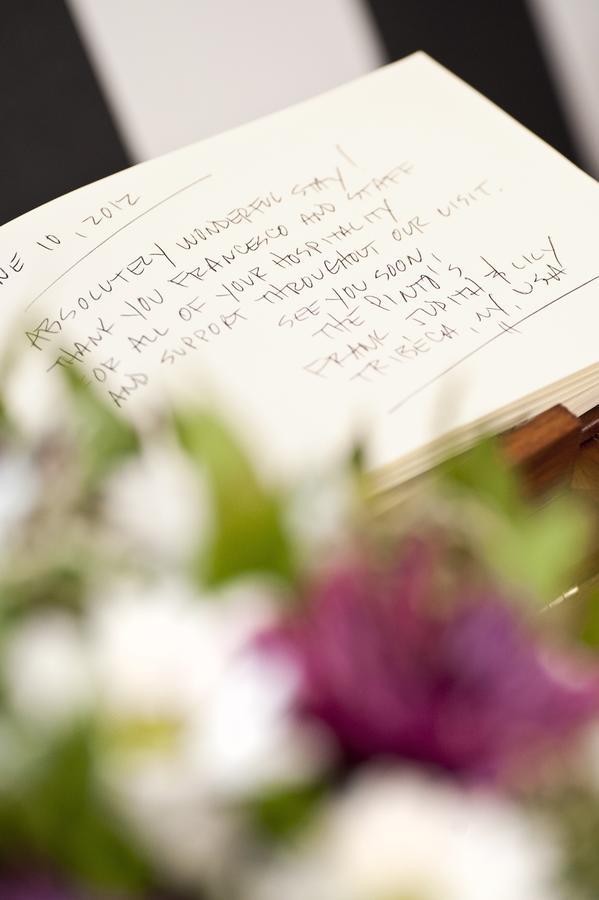 NE 10, 2012
ABSOLUTELY WONDERFUL STAY!
THANK YOU FRANCESCO AND STAFF
OR ALL OF YOUR HOSPITALITY
AND SUPPORT THROUGHOUT OUR VISIT.
SEE YOU SOON,
THE PINTO'S
FRANK JUDITH & LILY
TRIBECA, NY, USA